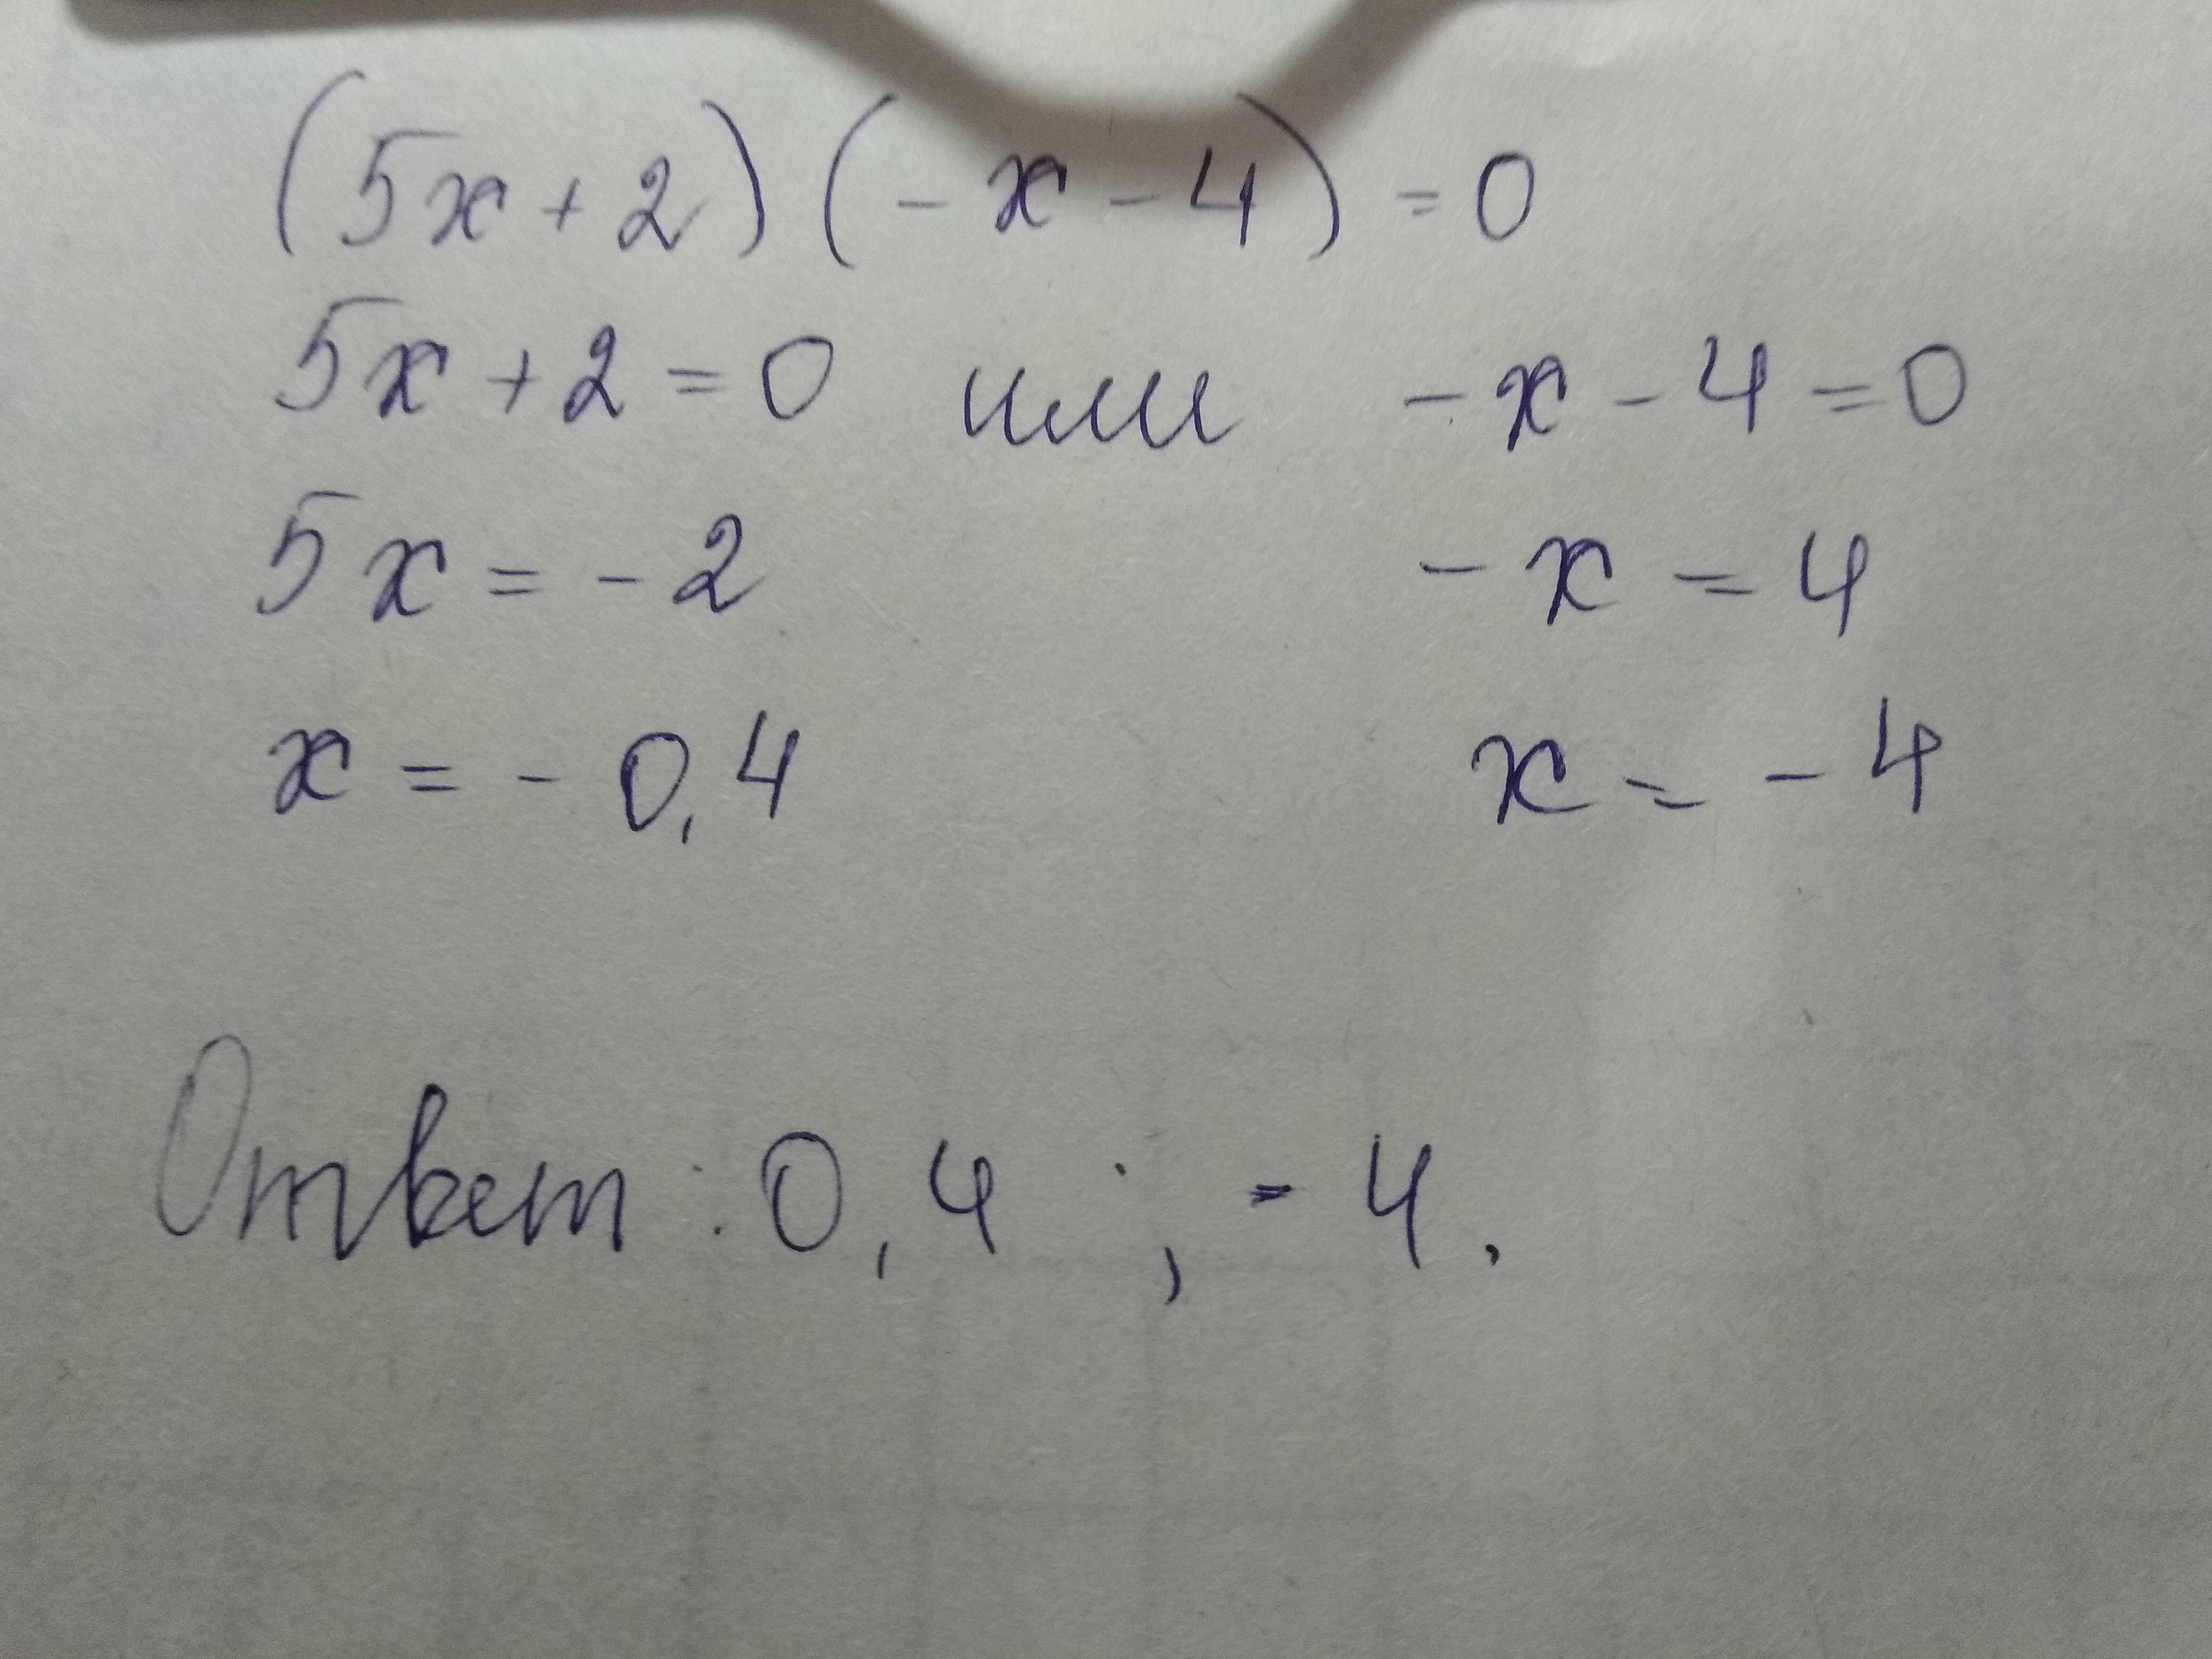 (5x+2)(-x-4)=0
5x+2=0 или -x-4=0
5x=-2 -x=4
x=-0,4 x=-4
Ответ: 0,4 ; -4.